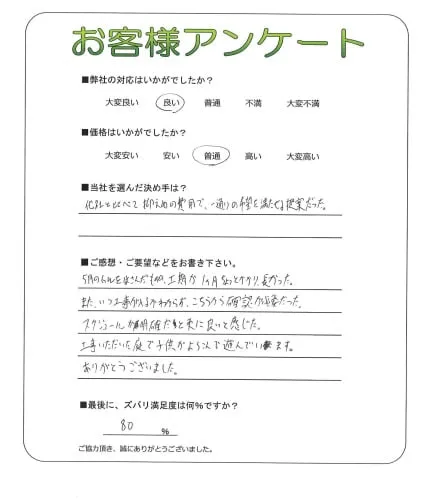 お客様アンケート
■弊社の対応はいかがでしたか?
大変良い 良い 普通 不満 大変不満
■価格はいかがでしたか?
大変安い 安い 普通 高い 大変高い
■当社を選んだ決め手は?
他社と比べて抑えめの費用で、一通りの希望を満たせる提案だった。
■ご感想・ご要望などをお書き下さい。
5月のGWをはさんだものの、工期が1ヶ月半とかかり長かった。
また、いつ工事が入るかわからず、こちらから確認が必要だった。
スケジュールが明確だと更に良いと感じた。
工事いただいた庭で子供がよろこんで遊んでいます。
ありがとうございました。
■最後に、ズバリ満足度は何%ですか?
80 %
ご協力頂き、誠にありがとうございました。